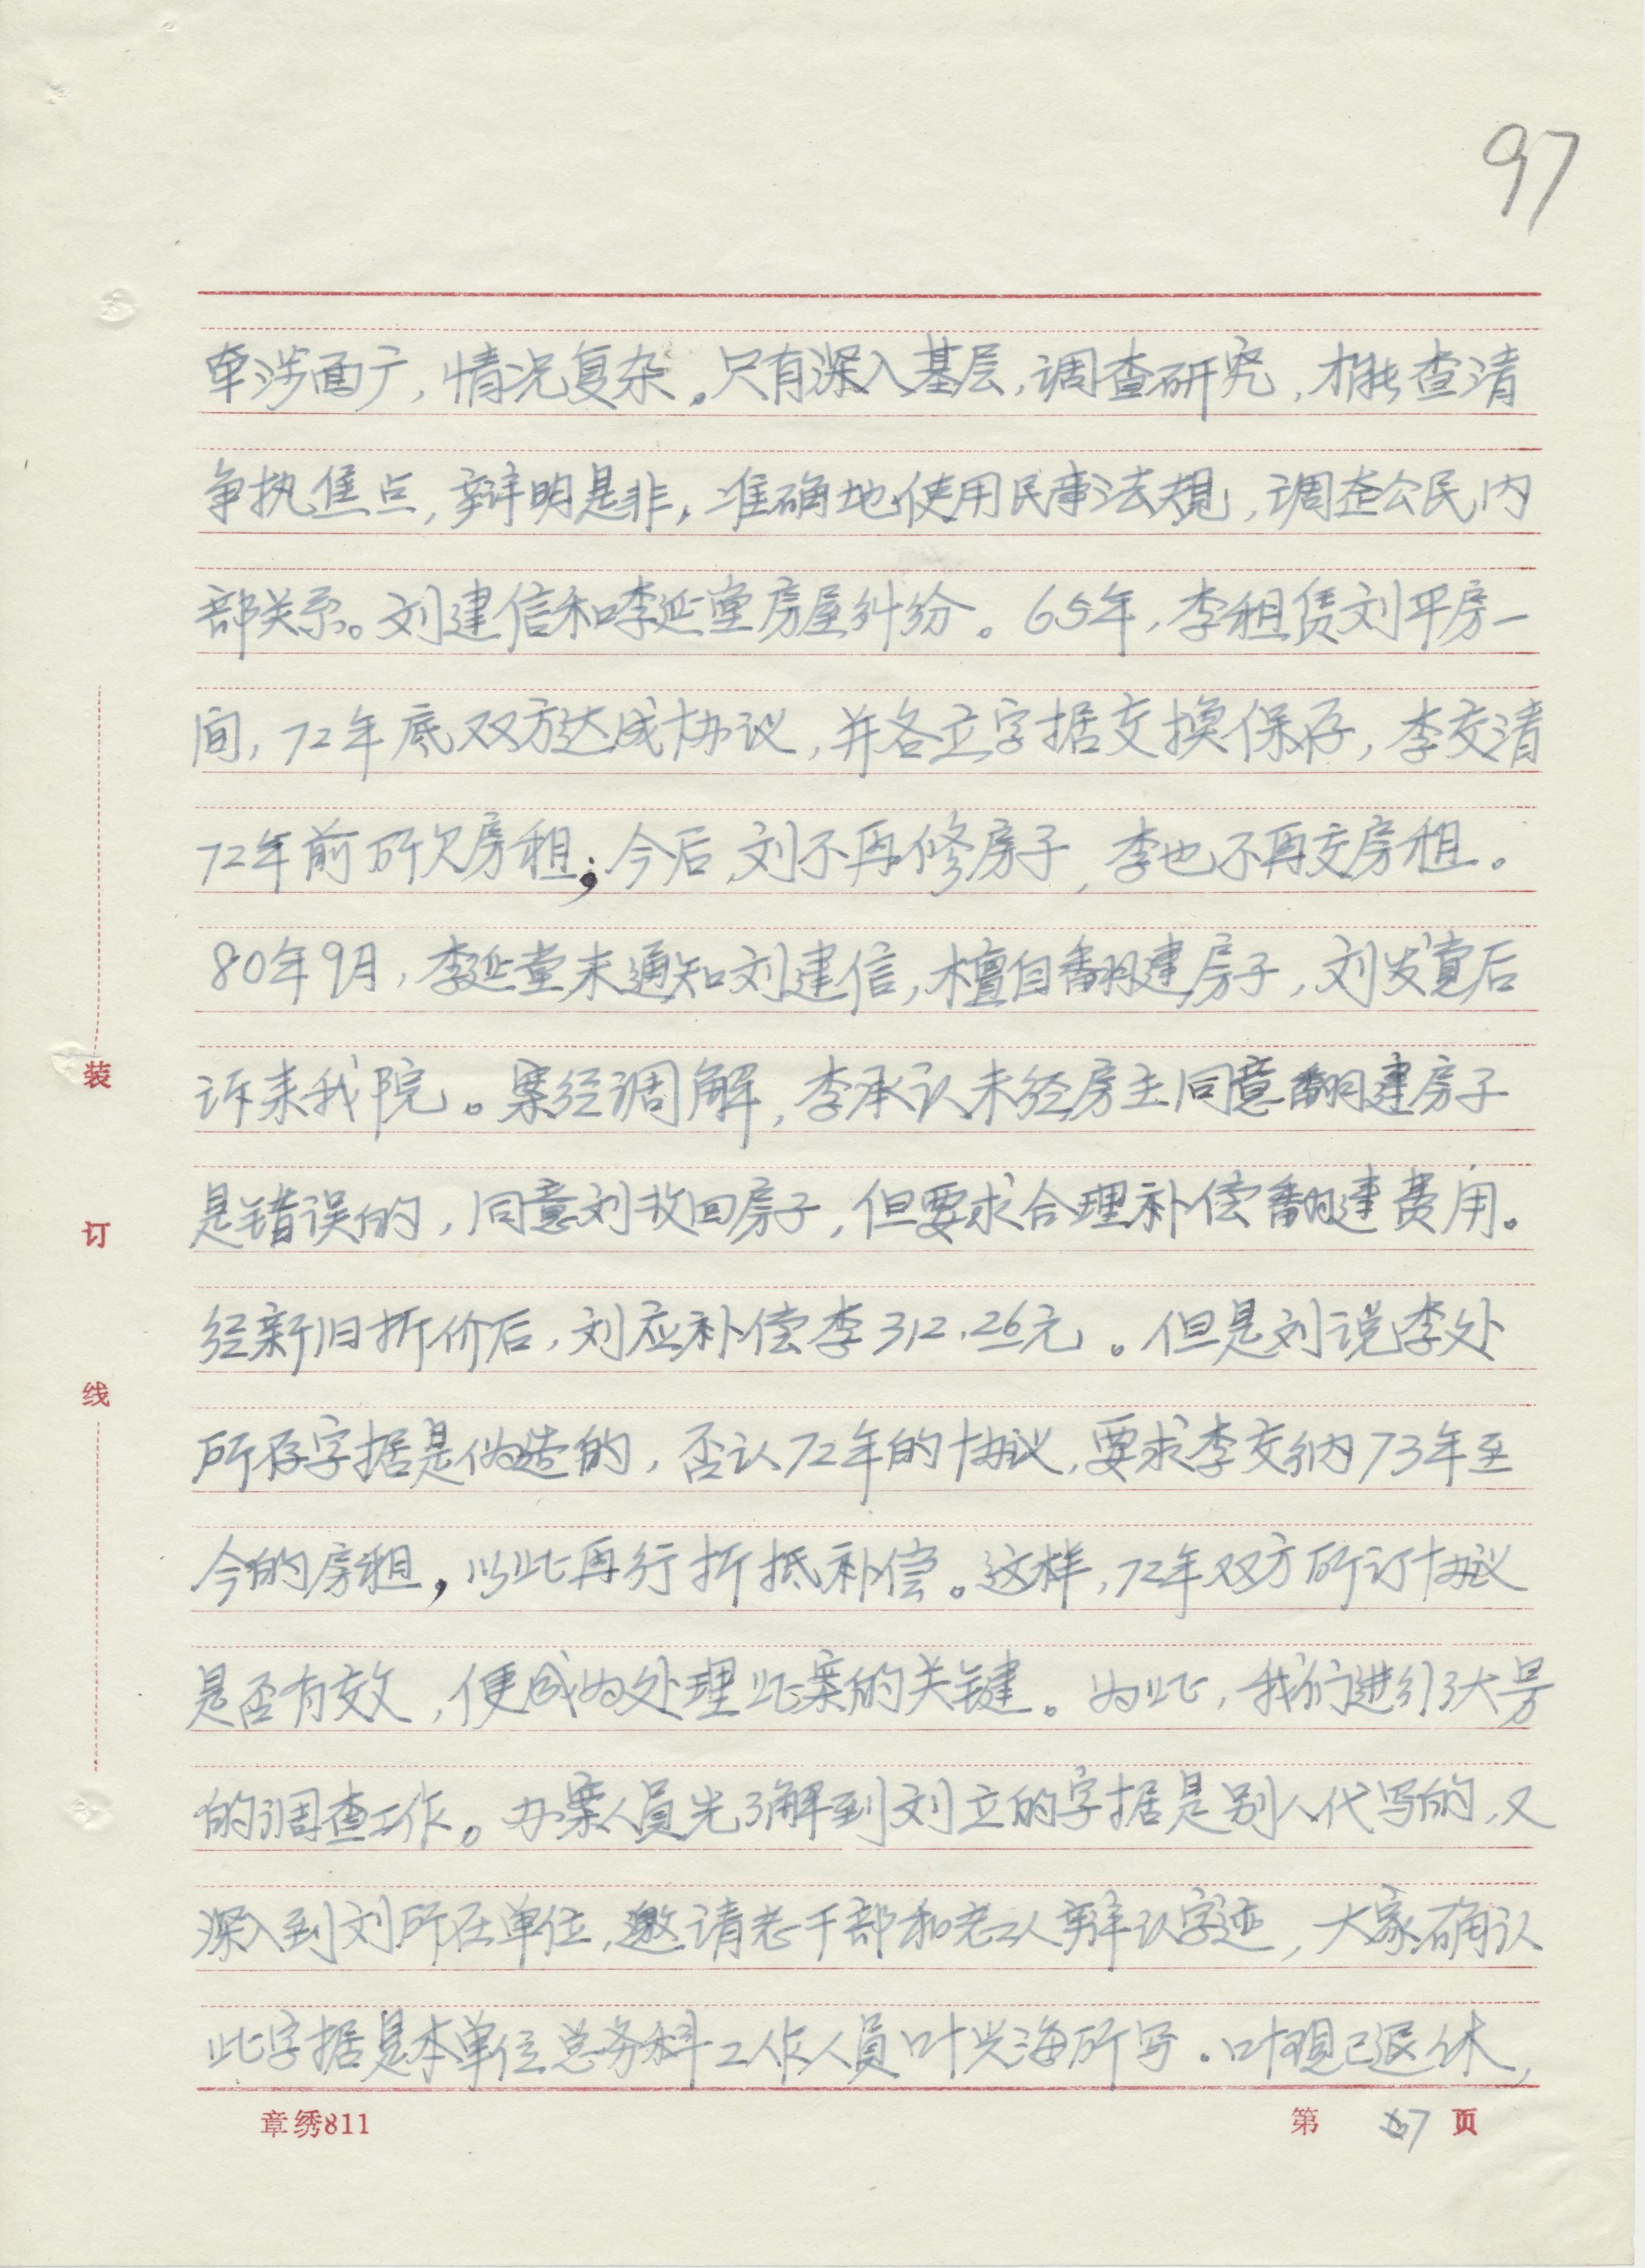 97
牵涉面广，情况复杂。只有深入基层，调查研究，才能查清
争执焦点，辩明是非，准确地使用民事法规，调整公民内
部关系。刘建信和李延堂房屋纠纷。65年，李租赁刘平房一
间，72年底双方达成协议，并各立字据交换保存，李交清
72年前所欠房租；今后，刘不再修房子，李也不再交房租。
80年9月，李延堂未通知刘建信，擅自翻建房子，刘发觉后
诉来我院。案经调解，李承认未经房主同意翻建房子
是错误的，同意刘收回房子，但要求合理补偿翻建费用。
经新旧折价后，刘应补偿李312.26元。但是刘说李处
所存字据是伪造的，否认72年的协议，要求李交纳73年至
今的房租，以此再行折抵补偿。这样，72年双方所订协议
是否有效，便成为处理此案的关键。为此，我们进行了大量
的调查工作。办案人员先了解到刘立的字据是别人代写的，又
深入到刘所在单位，邀请老干部和老工人辩认字迹，大家确认
此字据是本单位总务科工作人员叶兴海所写。叶现已退休，
装
订
线
章绣811
第 7 页